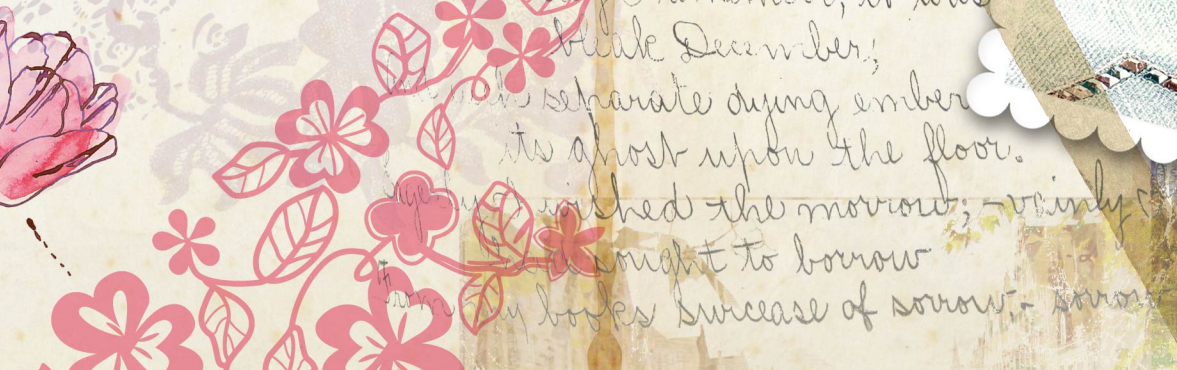 remember, it was
bleak December;
each separate dying ember
its ghost upon the floor.
wished the morrow; - vainly
sought to borrow
From my books surcease of sorrow; - sorrow